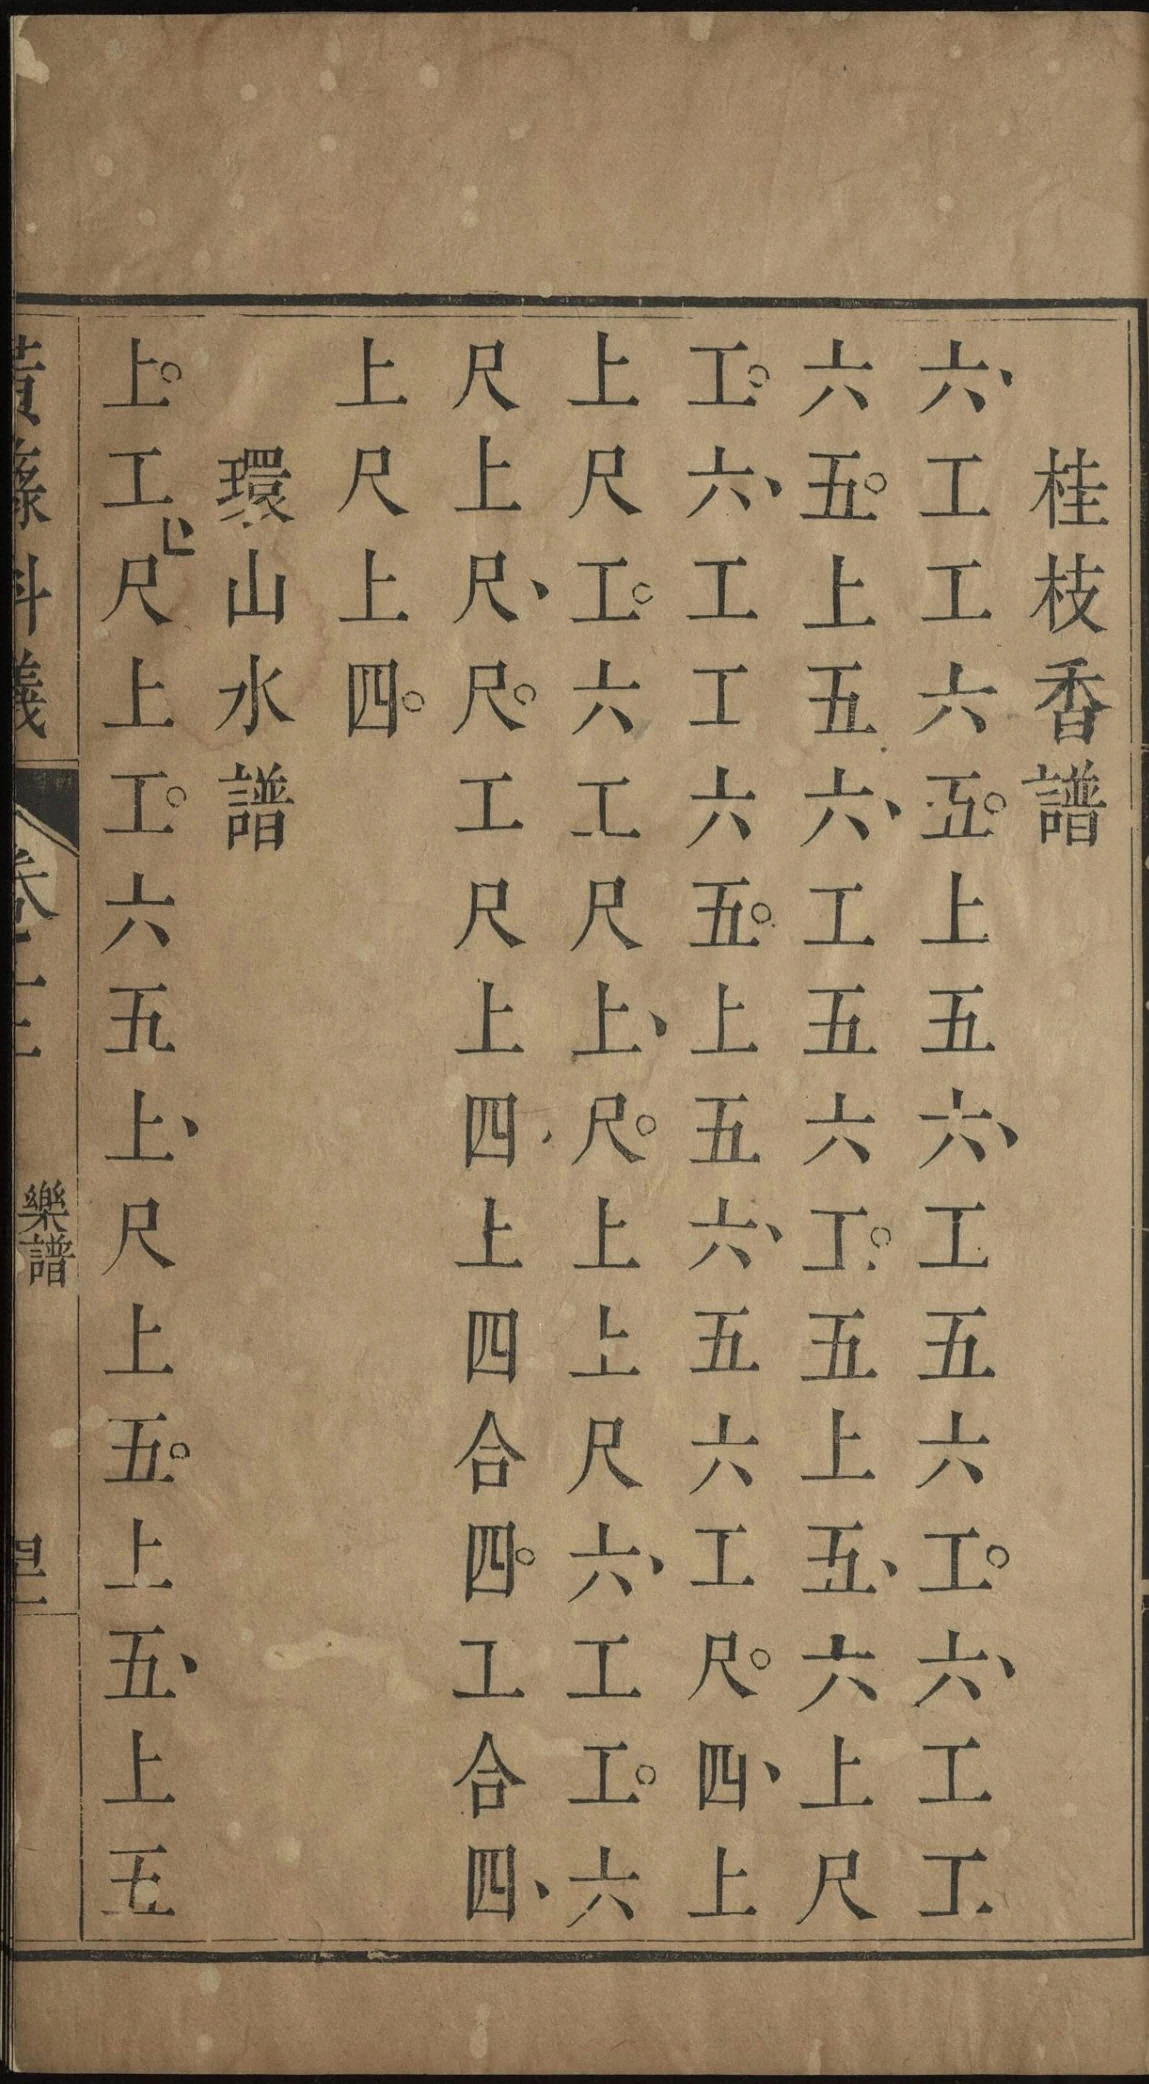 桂枝香譜
六、工工六五。上五六、工五六工。六、工工
六五。上五六、工五六工。五上五、六上尺
工。六、工工六五。上五六、五六工尺。四、上
上尺工。六工尺上、尺。上上尺六、工工。六
尺上尺、尺。工尺上四、上四合四。工合四、
上尺上四。
環山水譜
上。工、尺上工。六五上、尺上五。上五、上五
黃籙科儀 卷 樂譜